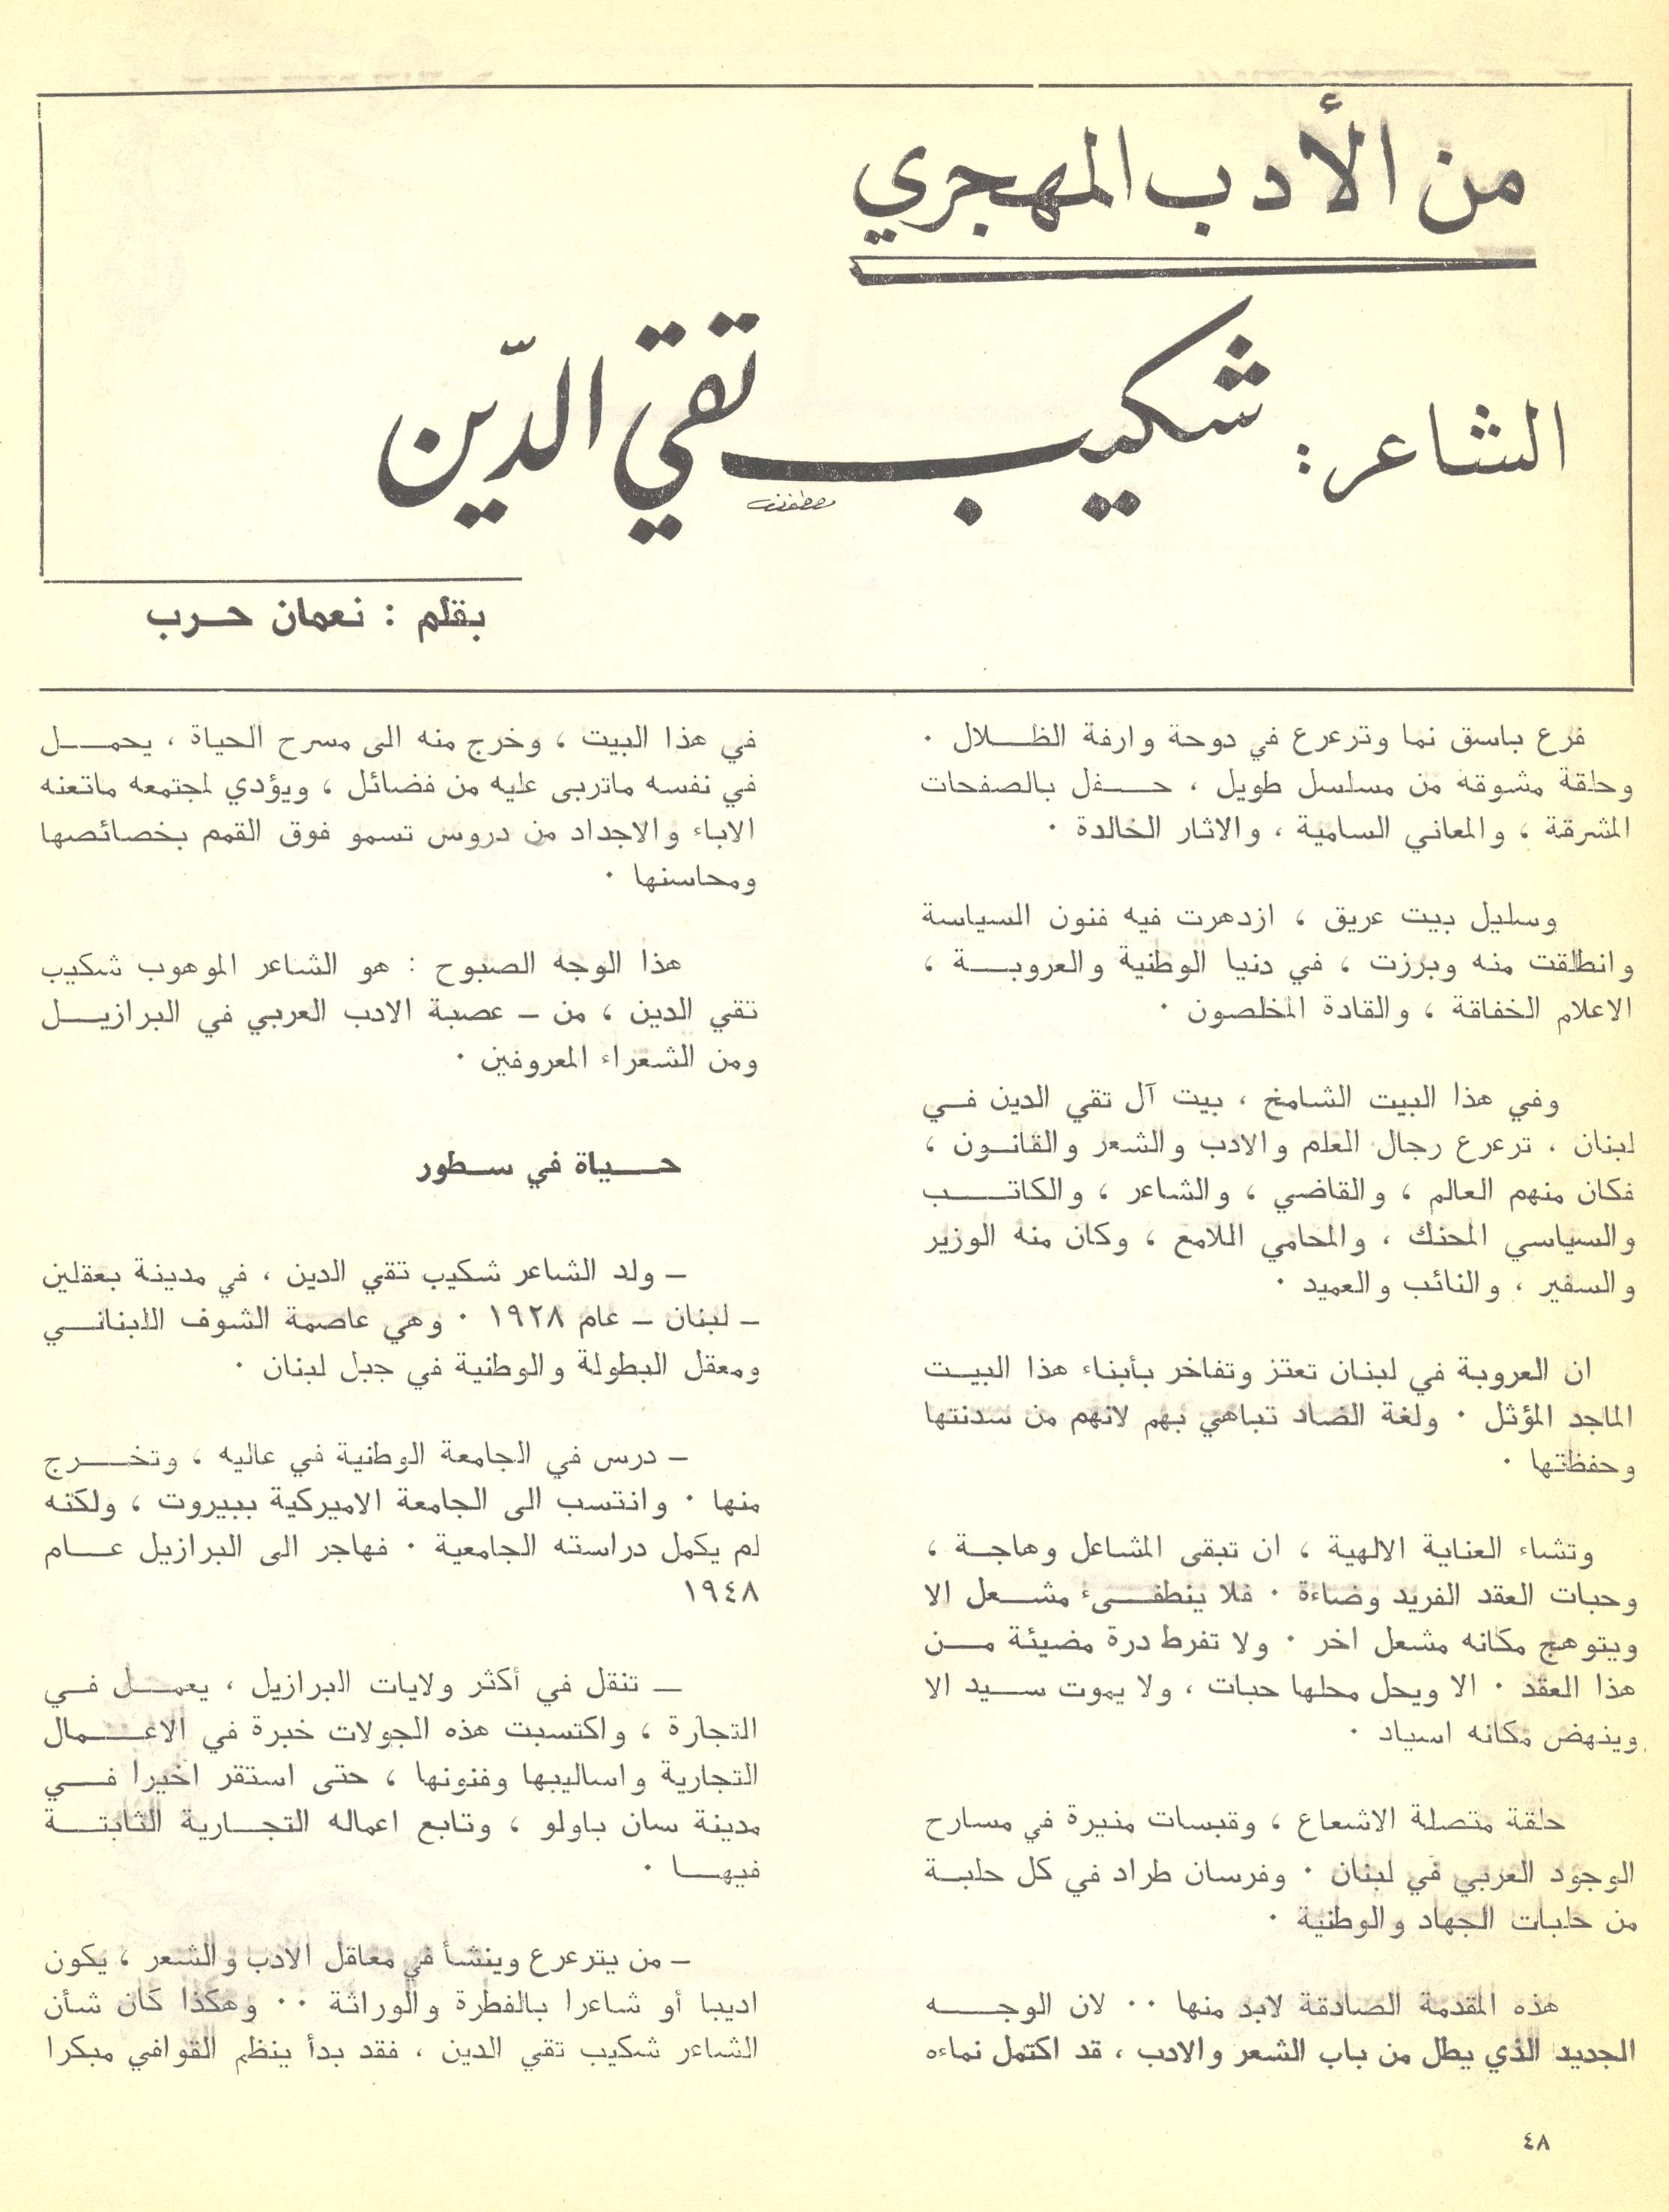 من الأدب المهجري
الشاعر : شكيب تقي الدّين
بقلم : نعمان حرب
فرع باسق نما وترعرع في دوحة وارفة الظلال .
وحلقة مشوقة من مسلسل طويل ، حفل بالصفحات
المشرقة ، والمعاني السامية ، والاثار الخالدة .
وسليل بيت عريق ، ازدهرت فيه فنون السياسة
وانطلقت منه وبرزت ، في دنيا الوطنية والعروبة ،
الاعلام الخفاقة ، والقادة المخلصون .
وفي هذا البيت الشامخ ، بيت آل تقي الدين في
لبنان . ترعرع رجال العلم والادب والشعر والقانون ،
فكان منهم العالم ، والقاضي ، والشاعر ، والكاتب
والسياسي المحنك ، والمحامي اللامع ، وكان منه الوزير
والسفير ، والنائب والعميد .
ان العروبة في لبنان تعتز وتفاخر بأبناء هذا البيت
الماجد المؤثل . ولغة الضاد تباهي بهم لانهم من سدنتها
وحفظتها .
وتشاء العناية الالهية ، ان تبقى المشاعل وهاجة ،
وحبات العقد الفريد وضاءة . فلا ينطفىء مشعل الا
ويتوهج مكانه مشعل اخر . ولا تفرط درة مضيئة من
هذا العقد . الا ويحل محلها حبات ، ولا يموت سيد الا
وينهض مكانه اسياد .
حلقة متصلة الاشعاع ، وقبسات منيرة في مسارح
الوجود العربي في لبنان . وفرسان طراد في كل حلبة
من حلبات الجهاد والوطنية .
هذه المقدمة الصادقة لابد منها .. لان الوجه
الجديد الذي يطل من باب الشعر والادب ، قد اكتمل نماءه
في هذا البيت ، وخرج منه الى مسرح الحياة ، يحمل
في نفسه ماتربى عليه من فضائل ، ويؤدي لمجتمعه ماتعنه
الاباء والاجداد من دروس تسمو فوق القمم بخصائصها
ومحاسنها .
هذا الوجه الصبوح : هو الشاعر الموهوب شكيب
تقي الدين ، من – عصبة الادب العربي في البرازيل
ومن الشعراء المعروفين .
حياة في سطور
– ولد الشاعر شكيب تقي الدين ، في مدينة بعقلين
– لبنان – عام ١٩٢٨ . وهي عاصمة الشوف اللبناني
ومعقل البطولة والوطنية في جبل لبنان .
– درس في الجامعة الوطنية في عاليه ، وتخرج
منها . وانتسب الى الجامعة الاميركية ببيروت ، ولكنه
لم يكمل دراسته الجامعية . فهاجر الى البرازيل عام
١٩٤٨
– تنقل في أكثر ولايات البرازيل ، يعمل في
التجارة ، واكتسبت هذه الجولات خبرة في الاعمال
التجارية واساليبها وفنونها ، حتى استقر اخيرا في
مدينة سان باولو ، وتابع اعماله التجارية الثابتة
فيها .
– من يترعرع وينشأ في معاقل الادب والشعر ، يكون
اديبا أو شاعرا بالفطرة والوراثة .. وهكذا كان شأن
الشاعر شكيب تقي الدين ، فقد بدأ ينظم القوافي مبكرا
٤٨